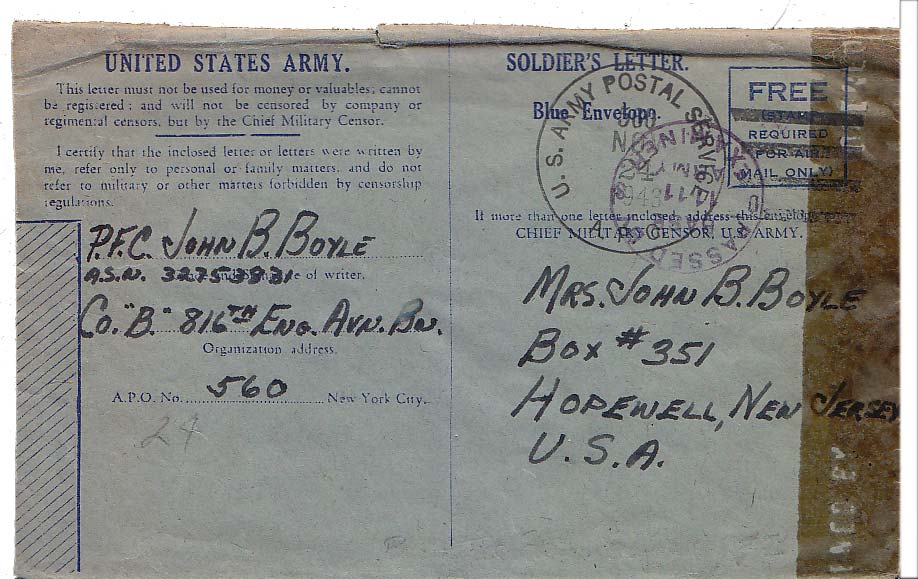 UNITED STATES ARMY.
This letter must not be used for money or valuables; cannot
be registered; and will not be censored by company or
regimental censors, but by the Chief Military Censor.
I certify that the inclosed letter or letters were written by
me, refer only to personal or family matters, and do not
refer to military or other matters forbidden by censorship
regulations.
P.F.C. JOHN B. BOYLE
A.S.N. 32753931
of writer.
Co. "B." 816TH ENG. AVN. BN.
Organization address.
A.P.O. No. 560 New York City.
24
SOLDIER'S LETTER.
Blue Envelope.
FREE
(STAMP
REQUIRED
FOR AIR
MAIL ONLY)
U.S. ARMY POSTAL SERVICE
NOV
24
1943
PASSED
ARMY
EXAMINER
If more than one letter inclosed, address this envelope
CHIEF MILITARY CENSOR, U.S. ARMY.
MRS. JOHN B. BOYLE
BOX # 351
HOPEWELL, NEW JERSEY
U.S.A.